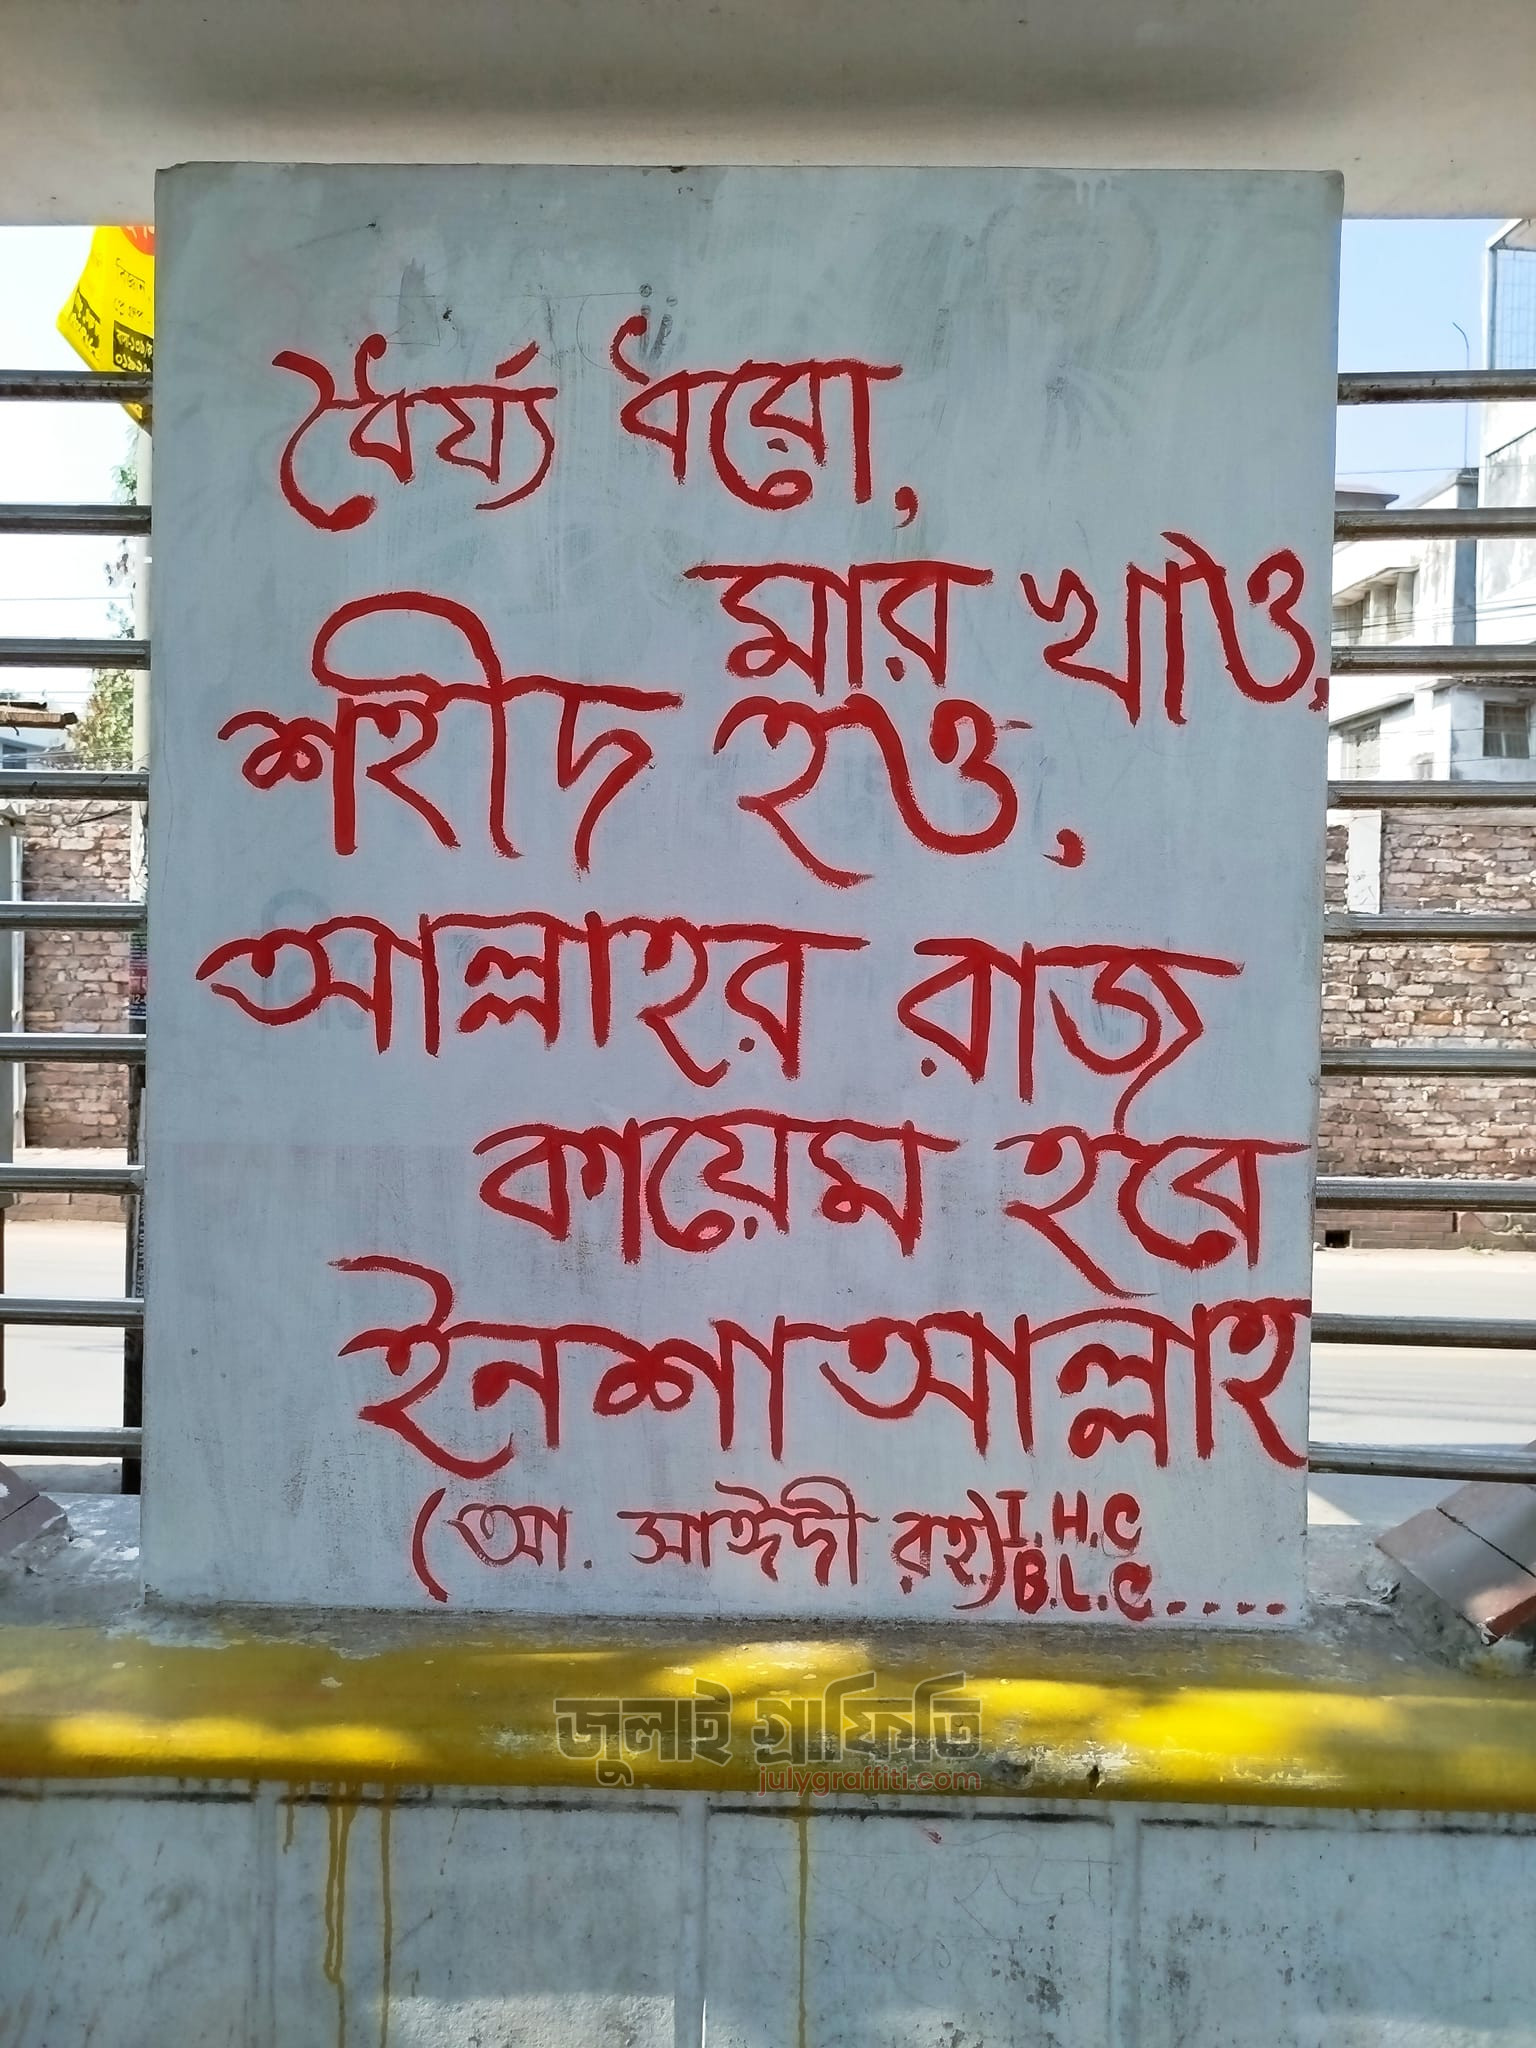 ধৈর্য্য ধরো,
মার খাও,
শহীদ হও,
আল্লাহর রাজ
কায়েম হবে
ইনশাআল্লাহ
(আ. সাঈদী রহ.) I.H.C
B.L.C....
জুলাই গ্রাফিতি
julygraffiti.com